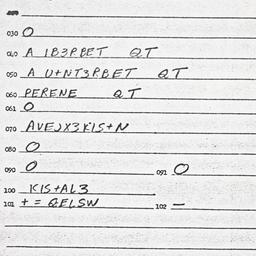 030 O
040 A 1B3PBET QT
050 A U+NT3PBET QT
060 PERENE QT
061 O
070 AVEJX3KIS+N
080 O
090 O 091 O
100 KIS+AL3
101 + = QELSW 102 —